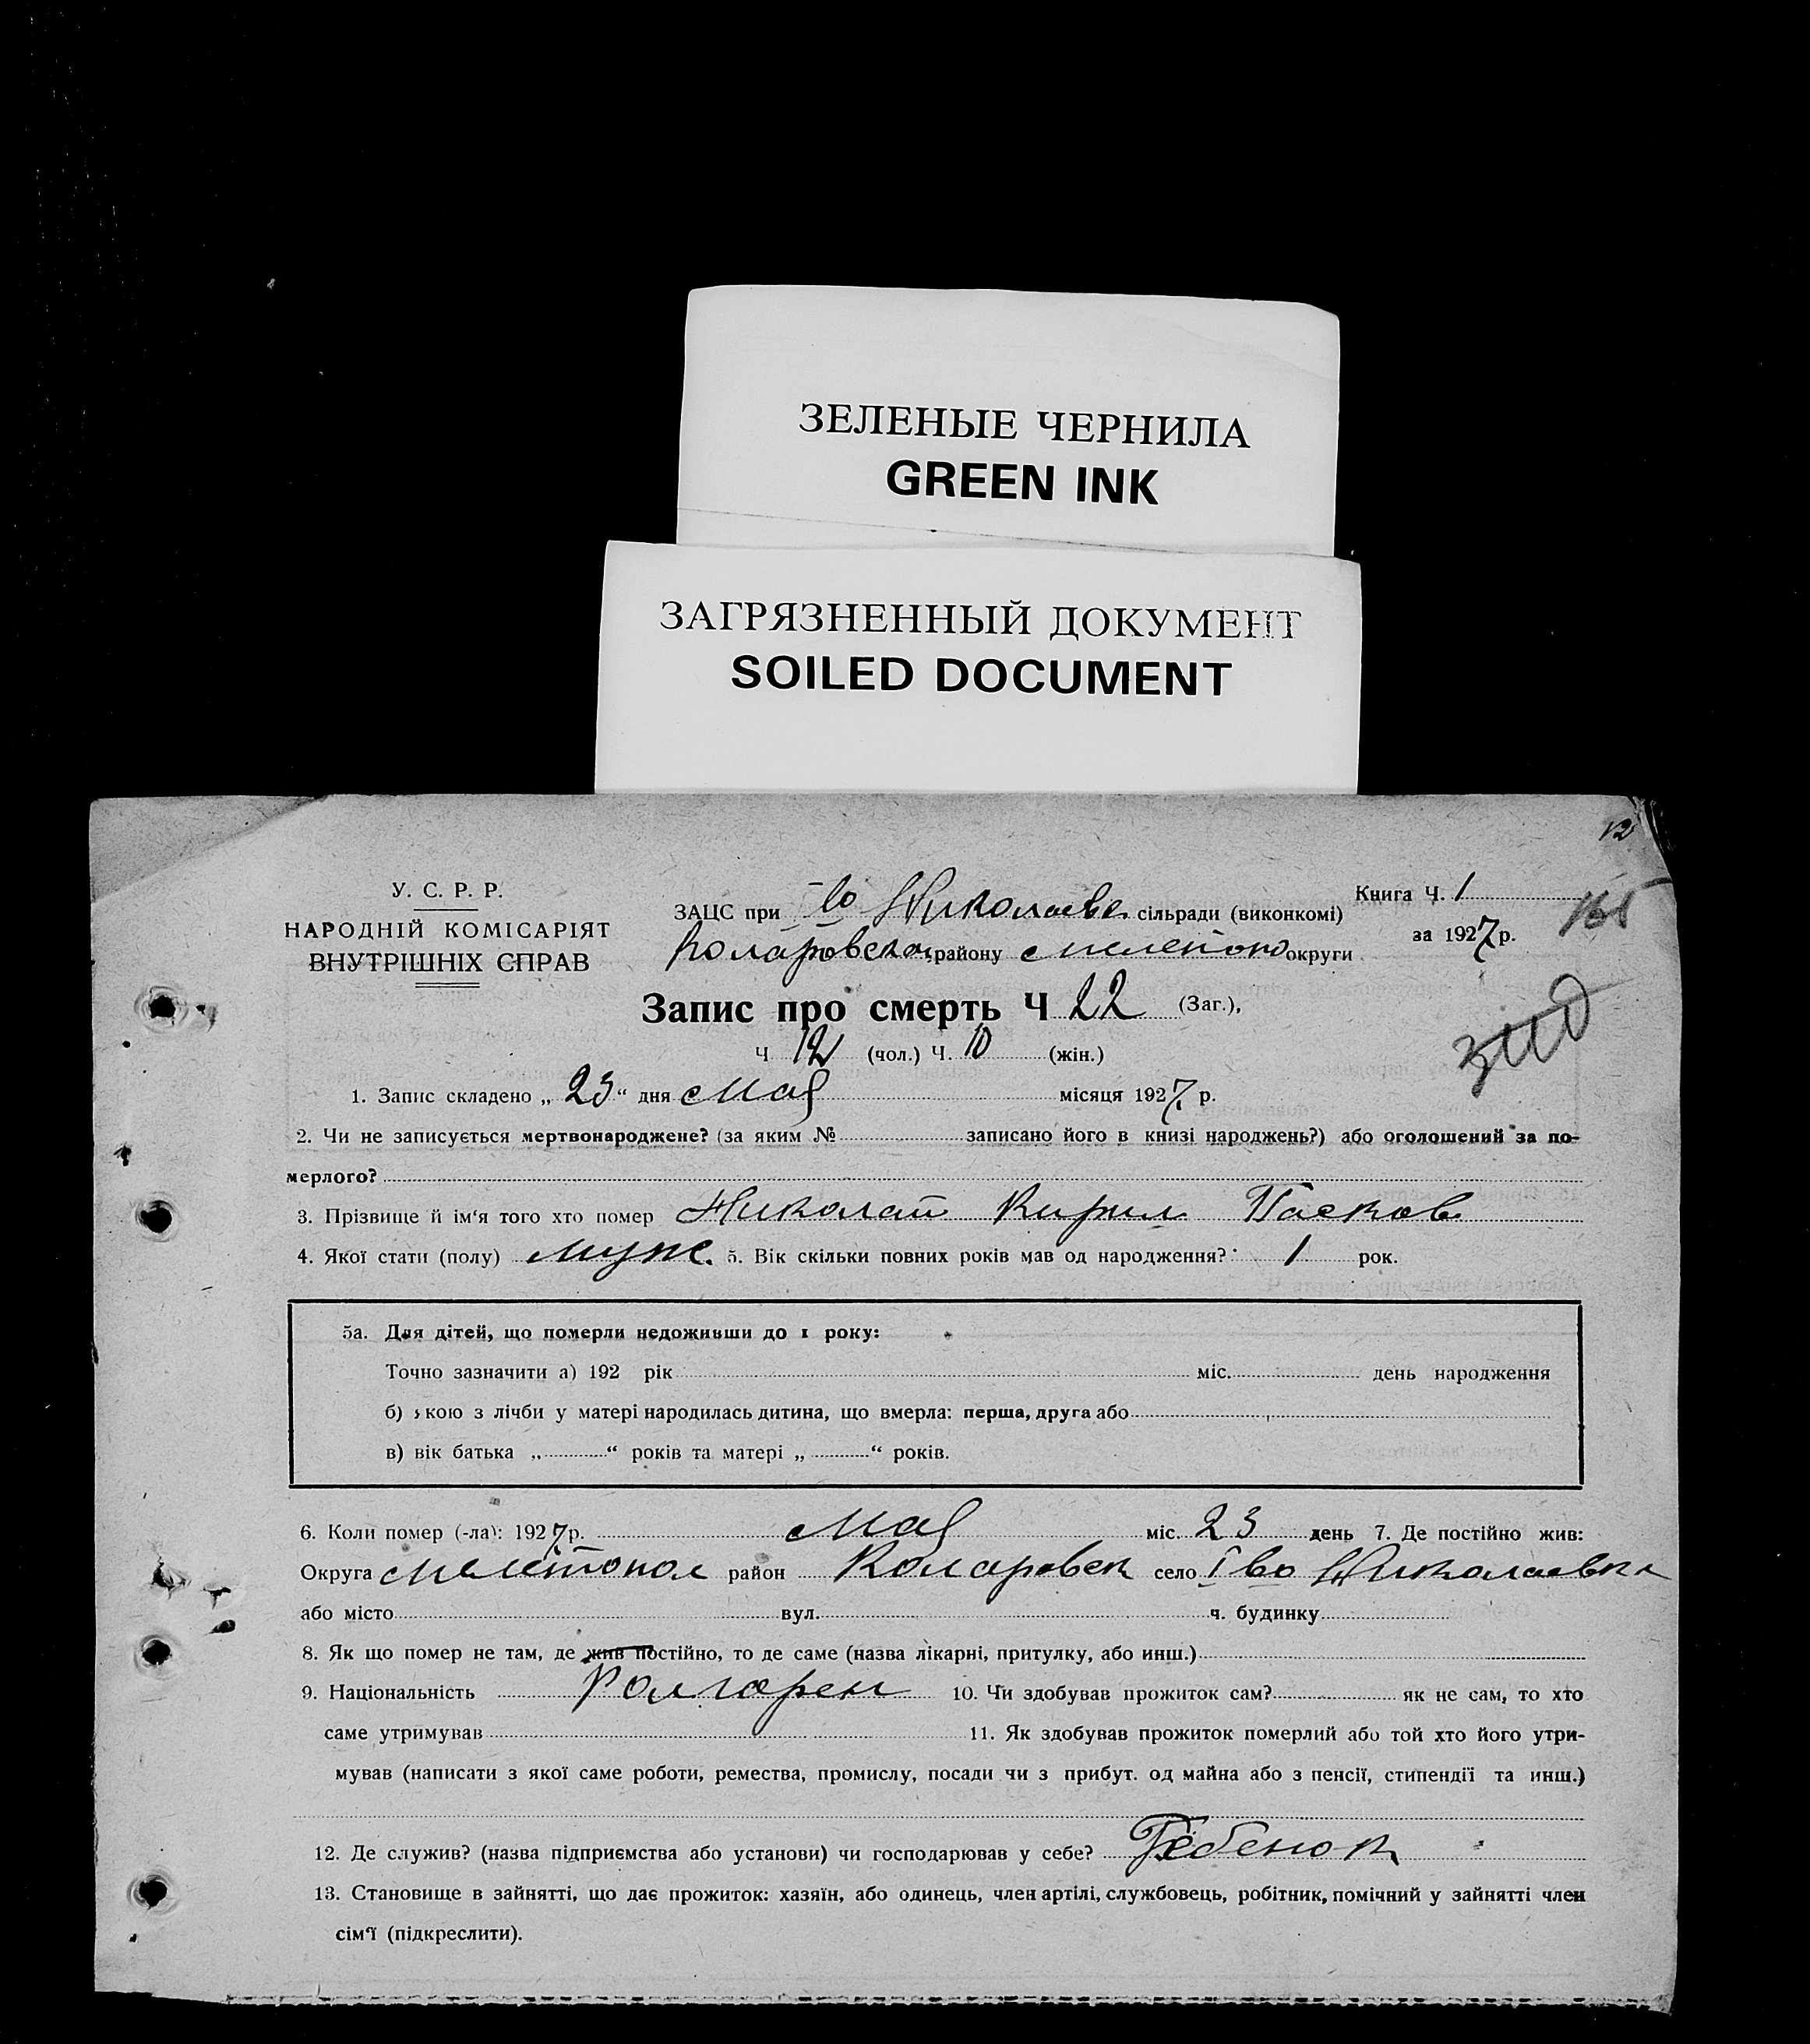 ЗЕЛЕНЫЕ ЧЕРНИЛА
GREEN INK
ЗАГРЯЗНЕННЫЙ ДОКУМЕНТ
SOILED DOCUMENT
12
У. С. Р. Р.
НАРОДНІЙ КОМІСАРІЯТ
ВНУТРІШНІХ СПРАВ
Книга Ч. 1
165
за 1927 р.
ЗАЦС при Iво Николаевс. сільради (виконкомі)
Коларовског району Мелетопо округи
Запис про смерть Ч 22 (Заг.),
Ч 12 (чол.) Ч. 10 (жін.)
1. Запис складено „ 23 “ дня Мая місяця 1927 р.
2. Чи не записується мертвонароджене? (за яким № записано його в книзі народжень?) або оголошений за по-
мерлого?
3. Прізвище й ім‘я того хто помер Николай Кирил Пасков
4. Якої стати (полу) Муж. 5. Вік скільки повних років мав од народження? 1 рок.
5а. Для дітей, що померли недоживши до 1 року:
Точно зазначити а) 192 рік міс. день народження
б) якою з лічби у матері народилась дитина, що вмерла: перша, друга або
в) вік батька „ “ років та матері „ “ років.
6. Коли помер (-ла): 1927 р. Мая міс. 23 день 7. Де постійно жив:
Округа Мелетопол район Коларовск село Iво Николаевка
або місто вул. ч. будинку
8. Як що помер не там, де жив постійно, то де саме (назва лікарні, притулку, або инш.)
9. Національність Болгарен 10. Чи здобував прожиток сам? як не сам, то хто
саме утримував 11. Як здобував прожиток померлий або той хто його утри-
мував (написати з якої саме роботи, ремества, промислу, посади чи з прибут. од майна або з пенсії, стипендії та инш.)
12. Де служив? (назва підприємства або установи) чи господарював у себе? Ребенок
13. Становище в зайнятті, що дає прожиток: хазяїн, або одинець, член артілі, службовець, робітник, помічний у зайнятті член
сім‘ї (підкреслити).